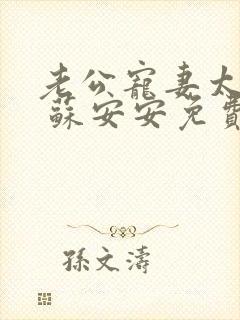 老公寵妻太
蘇安安免費
孫文濤